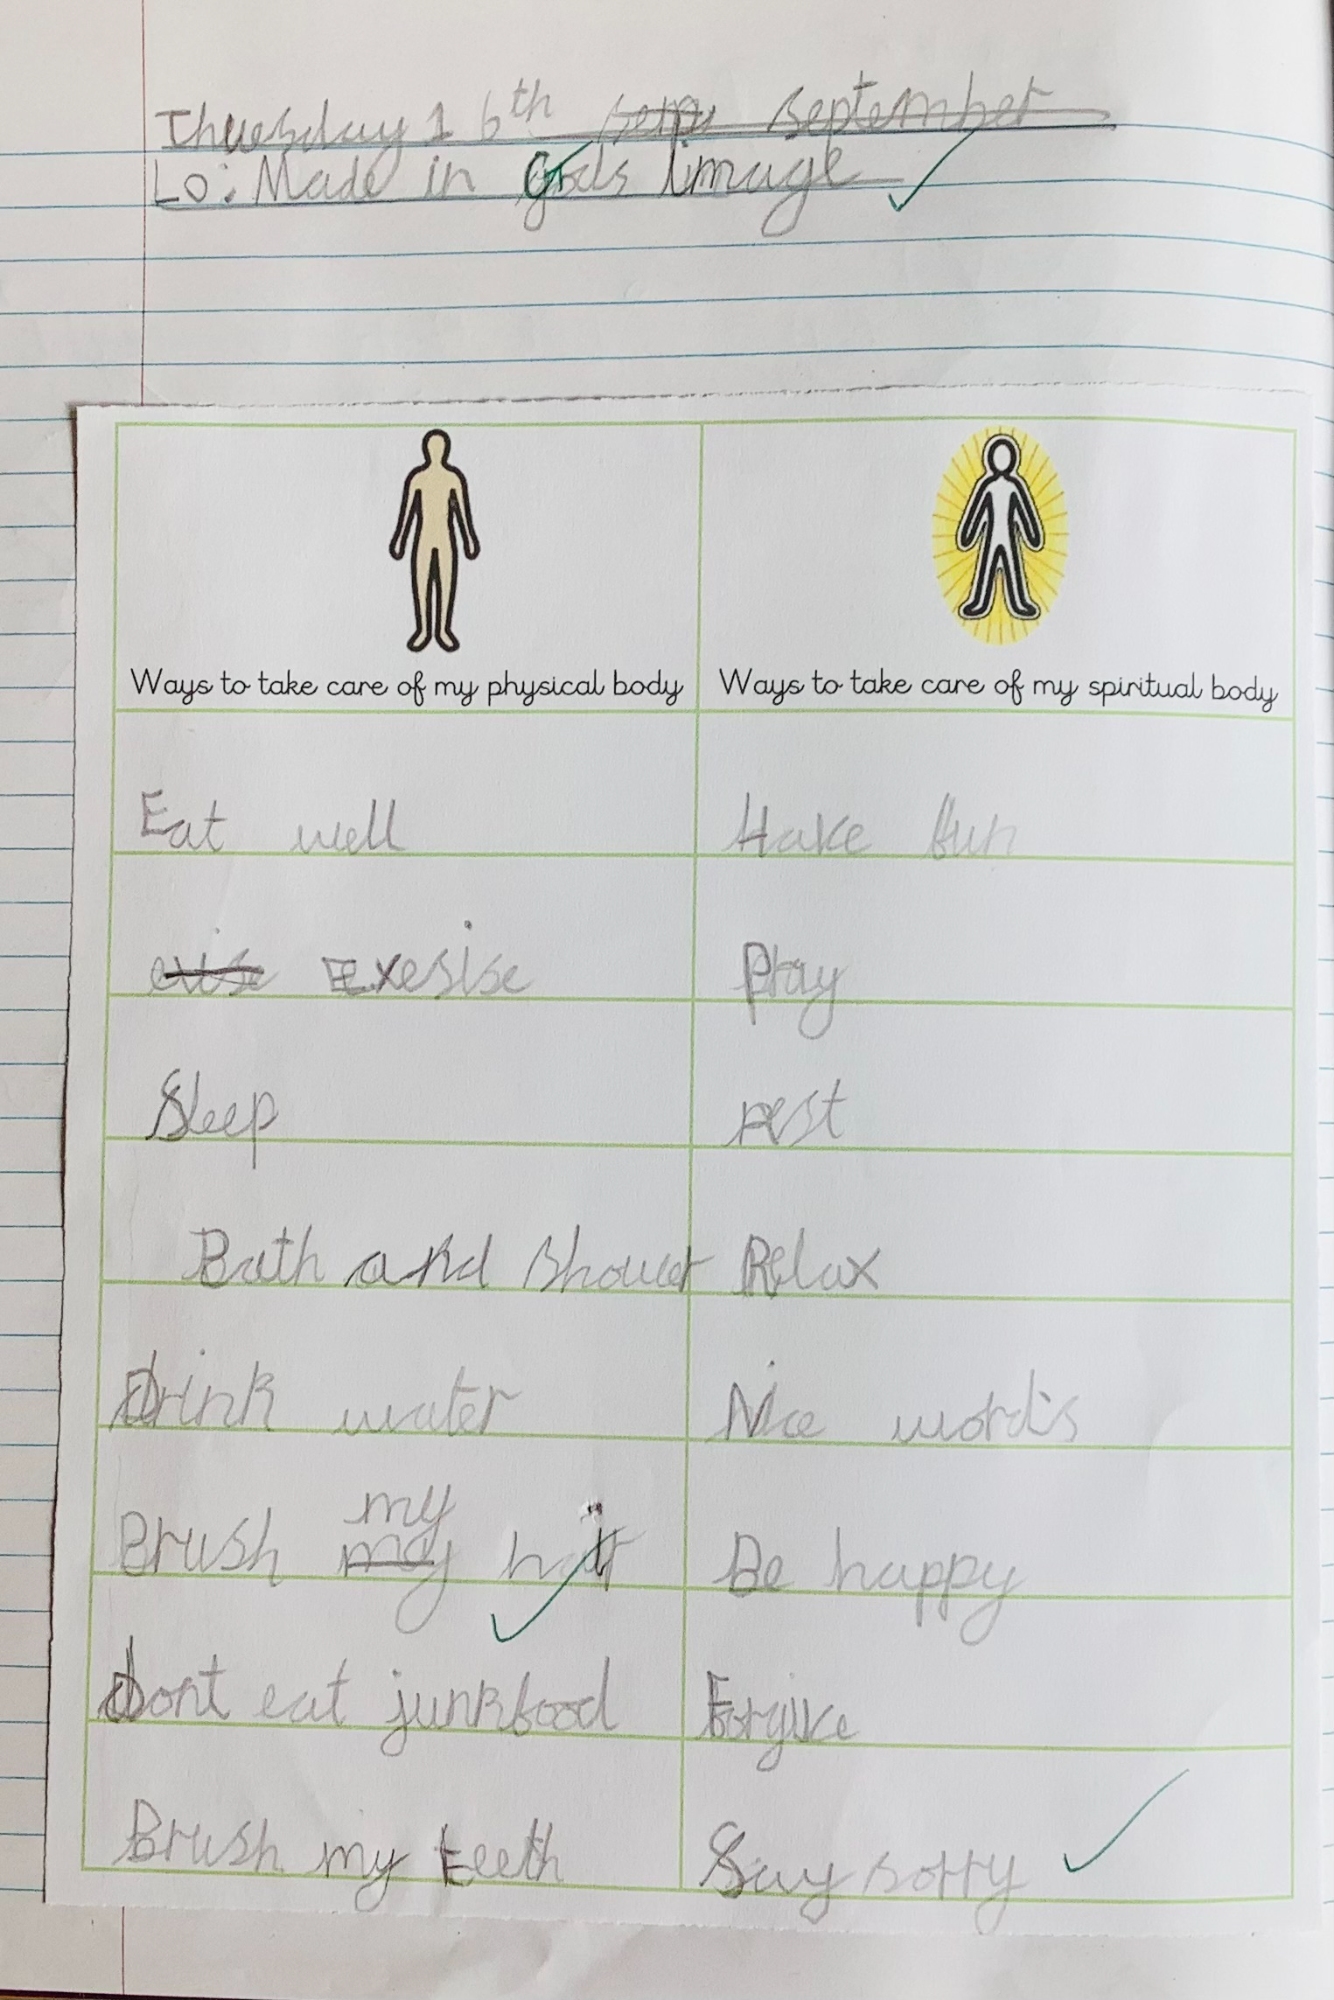 Thuesday 16th september
Lo: Made in Gods image
Ways to take care of my physical body
Ways to take care of my spiritual body
Eat well
Have fun
Exesise
Pray
Sleep
rest
Bath and shower
Relax
drink water
Nice words
Brush my hair
Be happy
dont eat junkfood
Forgive
Brush my teeth
Say sorry